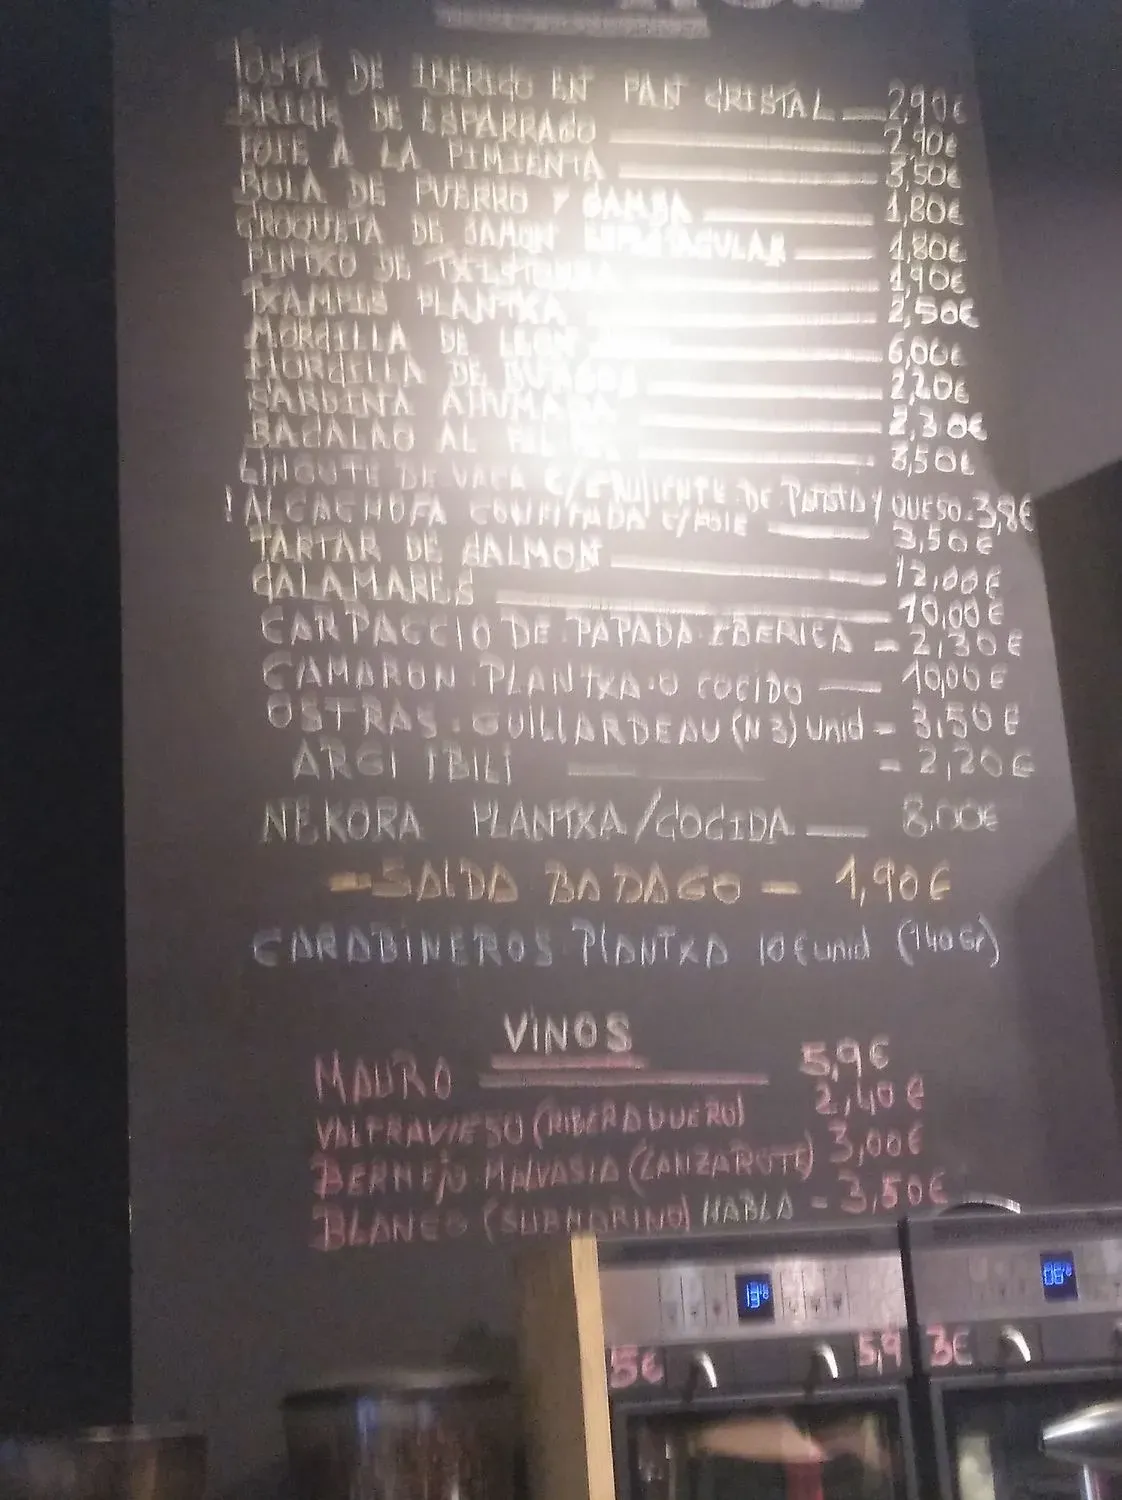 TOSTA DE IBERICO EN PAN CRISTAL 2,90€
BRICK DE ESPARRAGO 2,90€
FOIE A LA PIMIENTA 3,50€
BOLA DE PUERRO Y GAMBA 1,80€
CROQUETA DE JAMON ESPECTACULAR 1,80€
PINTXO DE TXISTORRA 1,90€
TXAMPIS PLANTXA 2,50€
MORCILLA DE LEON 6,00€
MORCILLA DE BURGOS 2,20€
SARDINA AHUMADA 2,30€
BACALAO AL PIL 3,50€
LINGOTE DE VACA C/ DE PATATA Y QUESO - 3,8€
! ALCACHOFA CONFITADA C/FOIE 3,50€
TARTAR DE SALMON 12,00€
CALAMARES 10,00€
CARPACCIO DE PAPADA IBERICA - 2,30€
CAMARON PLANTXA O COCIDO 10,00€
OSTRAS GUILLARDEAU (N 3) unid - 3,50€
ARGI IBILI - 2,20€
NEKORA PLANTXA/COCIDA 8,00€
- SALDA BADAGO - 1,90€
CARABINEROS PLANTXA 10€ unid (140 Gr)
VINOS
MAURO 5,9€
VALTRAVIESO (RIBERA DUERO) 2,40€
BERMEJO MALVASIA (LANZAROTE) 3,00€
BLANCO HABLA - 3,50€
13°8
06°8
5€
5,9
3€